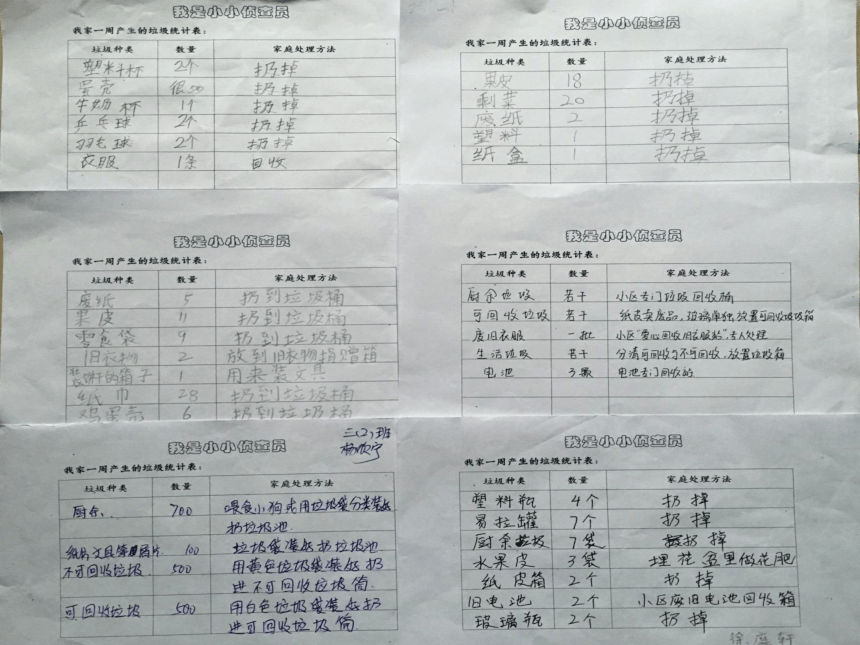 我是小小侦查员
我家一周产生的垃圾统计表：
垃圾种类 数量 家庭处理方法
塑料杯 2个 扔掉
蛋壳 很多 扔掉
牛奶杯 1个 扔掉
乒乓球 2个 扔掉
羽毛球 2个 扔掉
衣服 1条 回收
我是小小侦查员
我家一周产生的垃圾统计表：
垃圾种类 数量 家庭处理方法
果皮 18 扔掉
剩菜 20 扔掉
废纸 2 扔掉
塑料 1 扔掉
纸盒 1 扔掉
我是小小侦查员
我家一周产生的垃圾统计表：
垃圾种类 数量 家庭处理方法
废纸 5 扔到垃圾桶
果皮 11 扔到垃圾桶
零食袋 9 扔到垃圾桶
旧衣物 2 放到旧衣物捐赠箱
装饼的箱子 1 用来装文具
纸巾 28 扔到垃圾桶
鸡蛋壳 6 扔到垃圾桶
我是小小侦查员
我家一周产生的垃圾统计表：
垃圾种类 数量 家庭处理方法
厨余垃圾 若干 小区专门垃圾回收桶
可回收垃圾 若干 纸皮卖废品，垃圾单独放置可回收垃圾箱
废旧衣服 一批 小区"爱心回收旧衣服站"，专人处理
生活垃圾 若干 分清可回收与不可回收，放置垃圾箱
电池 3颗 电池专门回收的
三(2)班
我是小小侦查员
我家一周产生的垃圾统计表：
垃圾种类 数量 家庭处理方法
厨余、 700 喂食小狗或用垃圾袋分类装好
扔垃圾池.
纸屑文具等 100 垃圾袋装好扔垃圾池.
不可回收垃圾 500 用黄色垃圾袋装好扔
进不可回收垃圾筒.
可回收垃圾 500 用白色垃圾袋装好扔
进可回收垃圾筒
我是小小侦查员
我家一周产生的垃圾统计表：
垃圾种类 数量 家庭处理方法
塑料瓶 4个 扔掉
易拉罐 7个 扔掉
厨余垃圾 7袋 扔掉
水果皮 3袋 埋花盆里做花肥
纸皮箱 2个 扔掉
旧电池 2个 小区废旧电池回收箱
玻璃瓶 2个 扔掉
徐庭轩